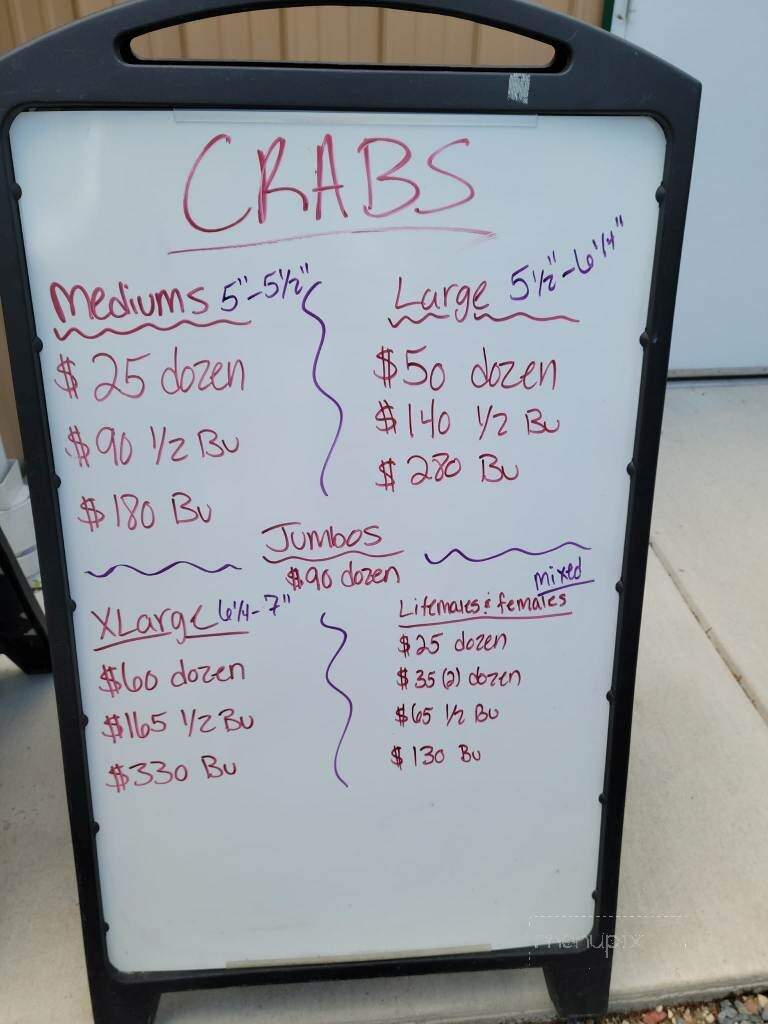 CRABS
Mediums 5"-5½"
$25 dozen
$90 1/2 Bu
$180 Bu
Large 5½"-6¼"
$50 dozen
$140 1/2 Bu
$280 Bu
Jumbos
$90 dozen
XLarge 6¼-7"
$60 dozen
$165 1/2 Bu
$330 Bu
mixed
Litemales & females
$25 dozen
$35 (2) dozen
$65 1/2 Bu
$130 Bu
menupix